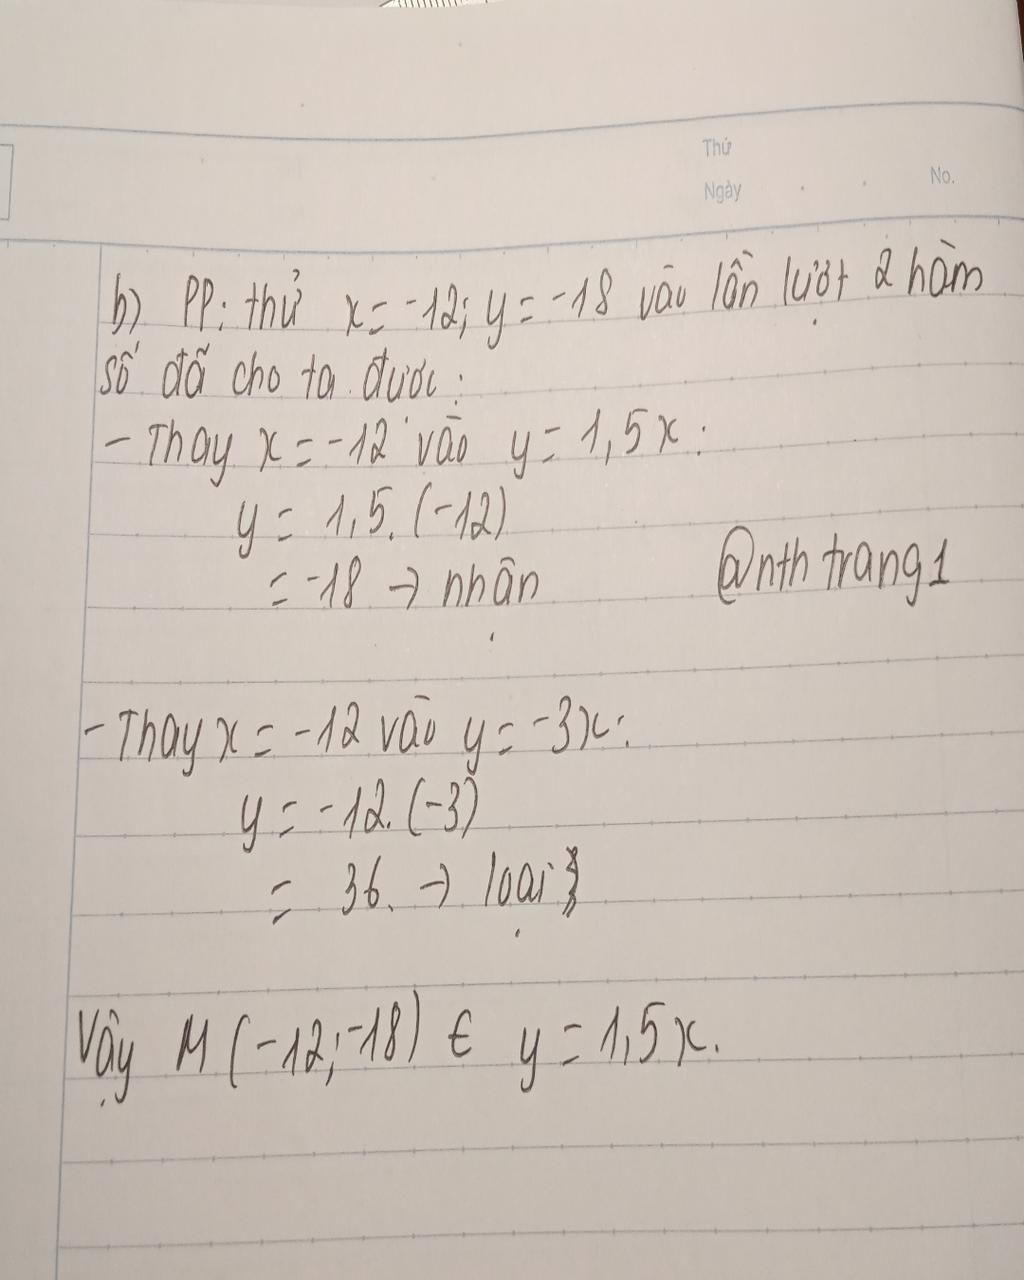 Thứ
Ngày
No.
b) PP: thử x = -12; y = -18 vào lần lượt 2 hàm
số đã cho ta được:
- Thay x = -12 vào y = 1,5x:
y = 1,5. (-12)
= -18 → nhận
@nthtrang1
- Thay x = -12 vào y = -3x:
y = -12. (-3)
= 36. → loại
Vậy M (-12; -18) € y = 1,5x.